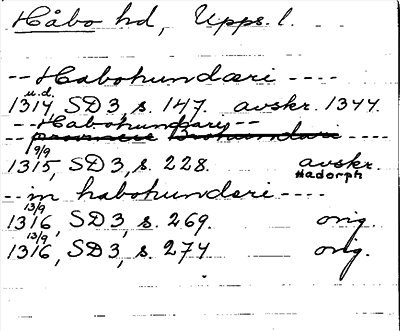 Håbo hd, Upps. l.
-- Habohundæri ----
u.d.
1314, SD 3, s. 147. avskr. 1344
-- Habohundary --
-- provincie Brohundari ----
9/9
1315, SD 3, s. 228. avskr.
Hadorph
-- in habohunderi ----
13/9
1316, SD 3, s. 269. orig.
13/9
1316, SD 3, s. 274 orig.